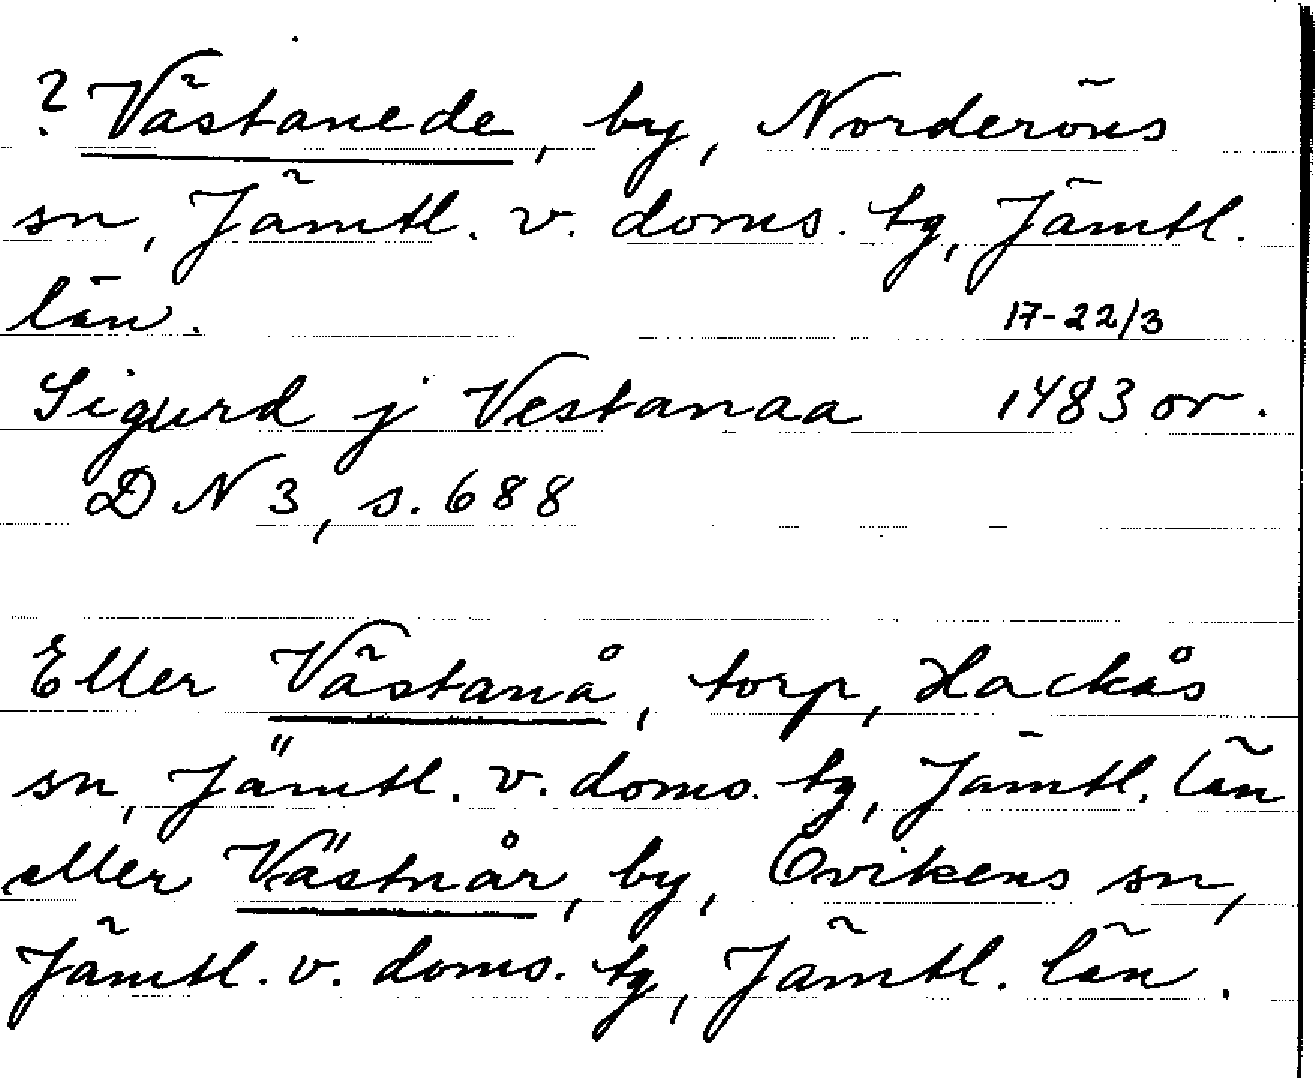 ? Västanede, by, Norderöns
sn, Jämtl. v. doms. tg, Jämtl.
län.
17-22/3
Sigurd j Vestanaa 1483 or.
DN 3, s. 688
Eller Västanå, torp, Hackås
sn, Jämtl. v. doms. tg, Jämtl. län
eller Västnår, by, Ovikens sn,
Jämtl. v. doms. tg, Jämtl. län.